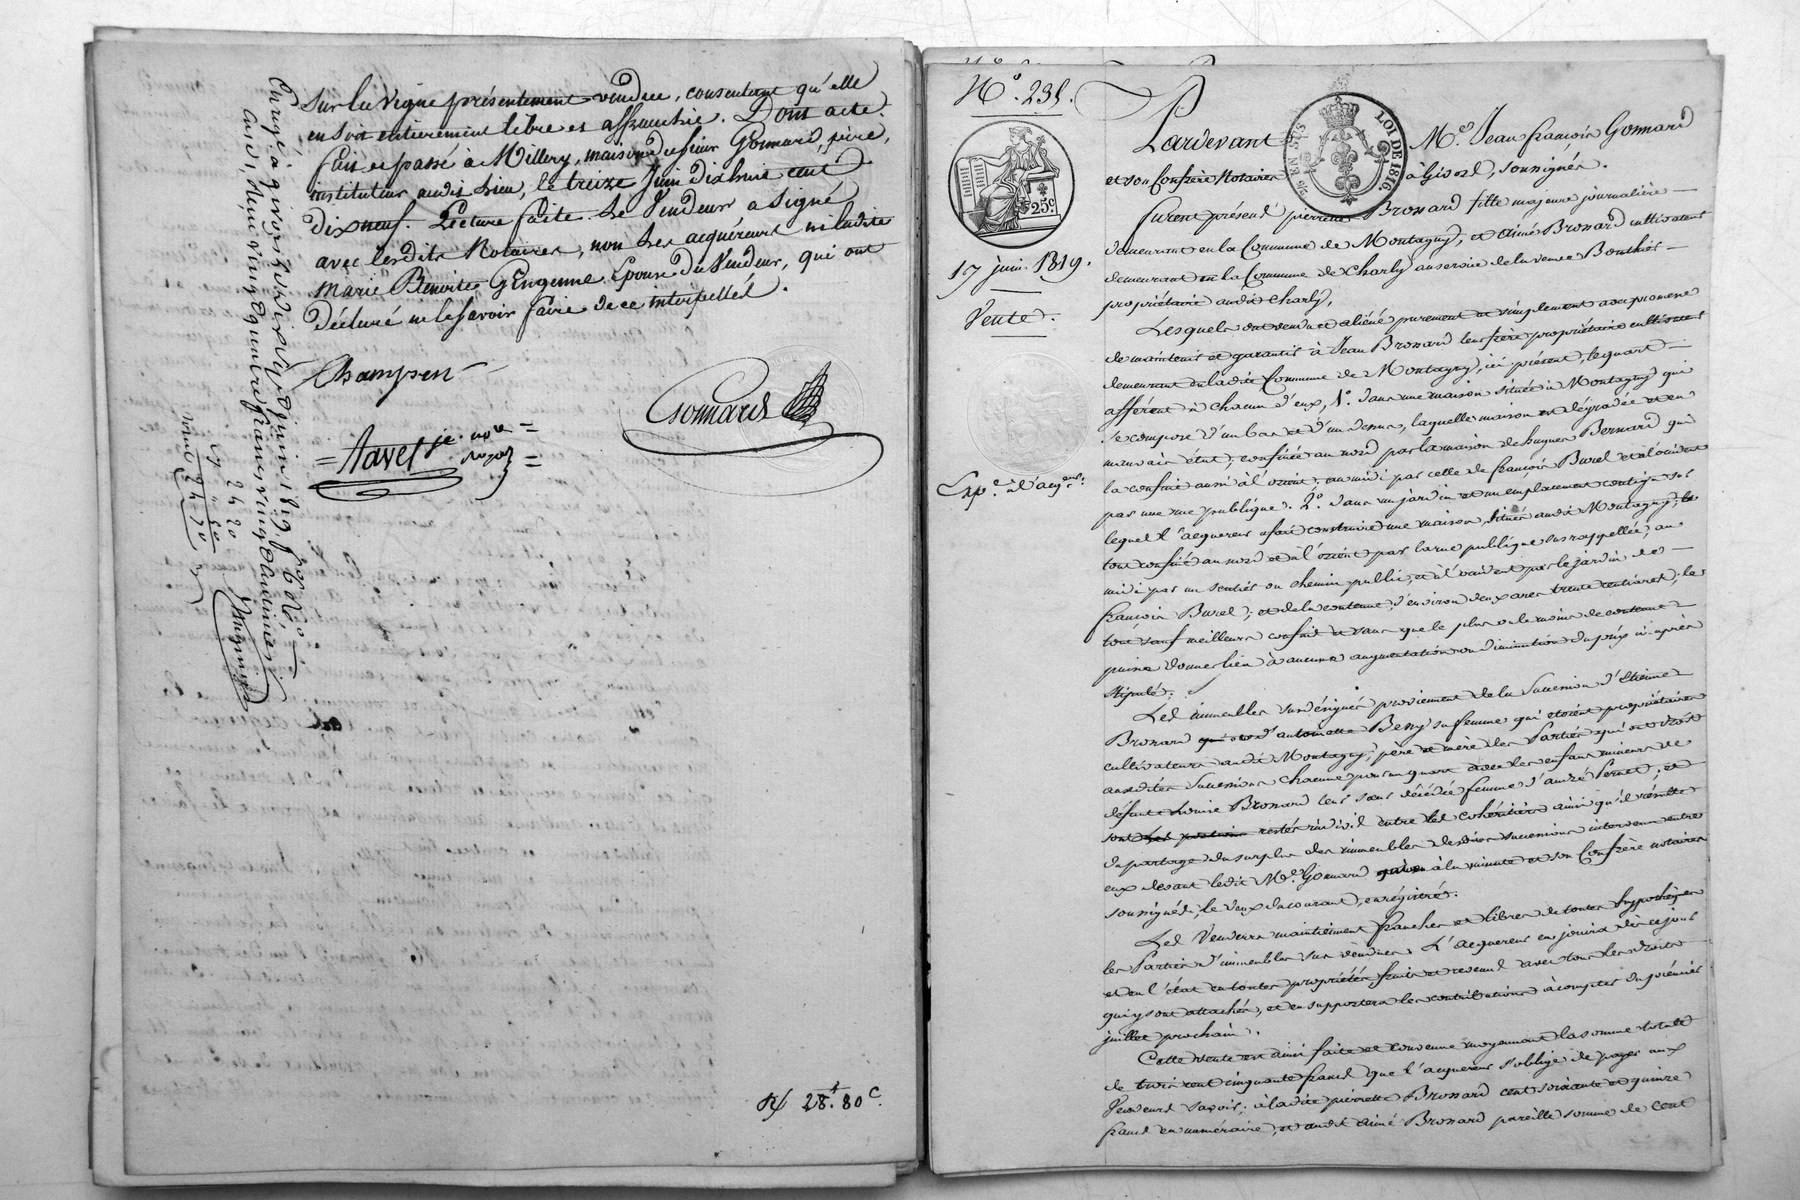 sur la vigne présentement vendue, consentant qu'elle
en soit entierement libre et affranchie. Dont acte.
fait et passé à Millery, maison du sieur Gonnard, père,
instituteur audit lieu, le treize Juin dix huit cent
dix neuf. Lecture faite. Le Vendeur a signé
avec lesdits Notaires, non les acquéreurs ni ladite
Marie Benoite Epouse du Vendeur, qui ont
déclaré ne le savoir faire de ce interpellés.
Champin
Gonnard
Tavel
Rx 28.f 80 c.
Enregé à givors le dix sept juin 1819
vingt quatre francs vingt centimes
24 20
N.° 235.
25c
17 juin 1819.
Vente.
Expé. à l'acqr.
26 EN SUS
LOI DE 1816
Pardevant M.e Jean françois Gonnard
et son Confrère Notaires à Givors, soussignés.
furent présens pierrette Bronard fille majeure journalière
demeurant en la Commune de Montagny, et aimé Bronard cultivateur
demeurant en la Commune de Charly au service de la veuve Bouthier
propriétaire audit Charly,
Lesquels ont vendu et aliéné purement et simplement avec promesse
de maintenir et garantir à Jean Bronard leur frère propriétaire cultivateur
demeurant en ladite Commune de Montagny, ici présent, le quart
afférent à chacun d'eux, 1.° dans une maison située à Montagny qui
se compose d'un bas et d'un dessus, laquelle maison est dégradée et en
mauvais état; confinée au nord par la maison de hugues Bernard qui
la confine aussi à l'orient, au midi par celle de françois Burel et à l'occident
par une rue publique. 2.° dans un jardin et un emplacement contigu sur
lequel l'acquereur a fait construire une maison, situés audit Montagny; le
tout confiné au nord et à l'orient par la rue publique sus rappellée, au
midi par un sentier ou chemin public, et à l'occident par le jardin de
françois Burel; et de la contenue d'environ deux ares trente centiares; le
tout sauf meilleurs confins et sans que le plus ou le moins de contenue
puisse donner lieu à aucune augmentation ou diminution du prix ci-après
stipulé.
Les immeubles sus désignés proviennent de la succession d'Etienne
Bronard et d'antoinette Beny sa femme qui etoient propriétaires
cultivateurs audit Montagny, père et mère des Parties qui ont droit
auxdites successions chacune pour un quart avec les enfans mineurs de
défunte Louise Bronard leur sœur décédée femme d'andré Pernet; et
sont restés indivis entre les cohéritiers ainsi qu'il résulte
du partage du surplus des immeubles desdites successions intervenu entre
eux devant ledit M.e Gonnard à la minute et son Confrère notaires
soussignés, le deux du courant, enregistré.
Les Vendeurs maintiennent franches et libres de toutes hypothèques
les Parties d'immeubles sus vendues. L'acquereur en jouira dès ce jour
et en l'état en toutes propriétés, fruits et revenus avec tous les droits
qui y sont attachés, et en supportera les contributions à compter du premier
juillet prochain.
Cette vente est ainsi faite et convenue moyennant la somme totale
de trois cent cinquante francs que l'acquereur s'oblige de payer aux
Vendeurs savoir; à ladite pierrette Bronard cent soixante et quinze
francs en numéraire, et audit aimé Bronard pareille somme de cent